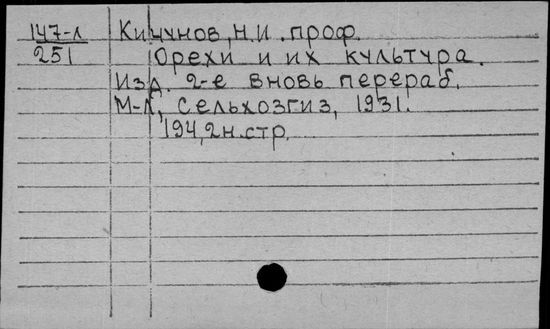 147-л Кичунов, Н.И. проф.
251 Орехи и их культура.
Изд. 2-е вновь перераб.
М-Л, Сельхозгиз, 1931.
194, 2н.стр.